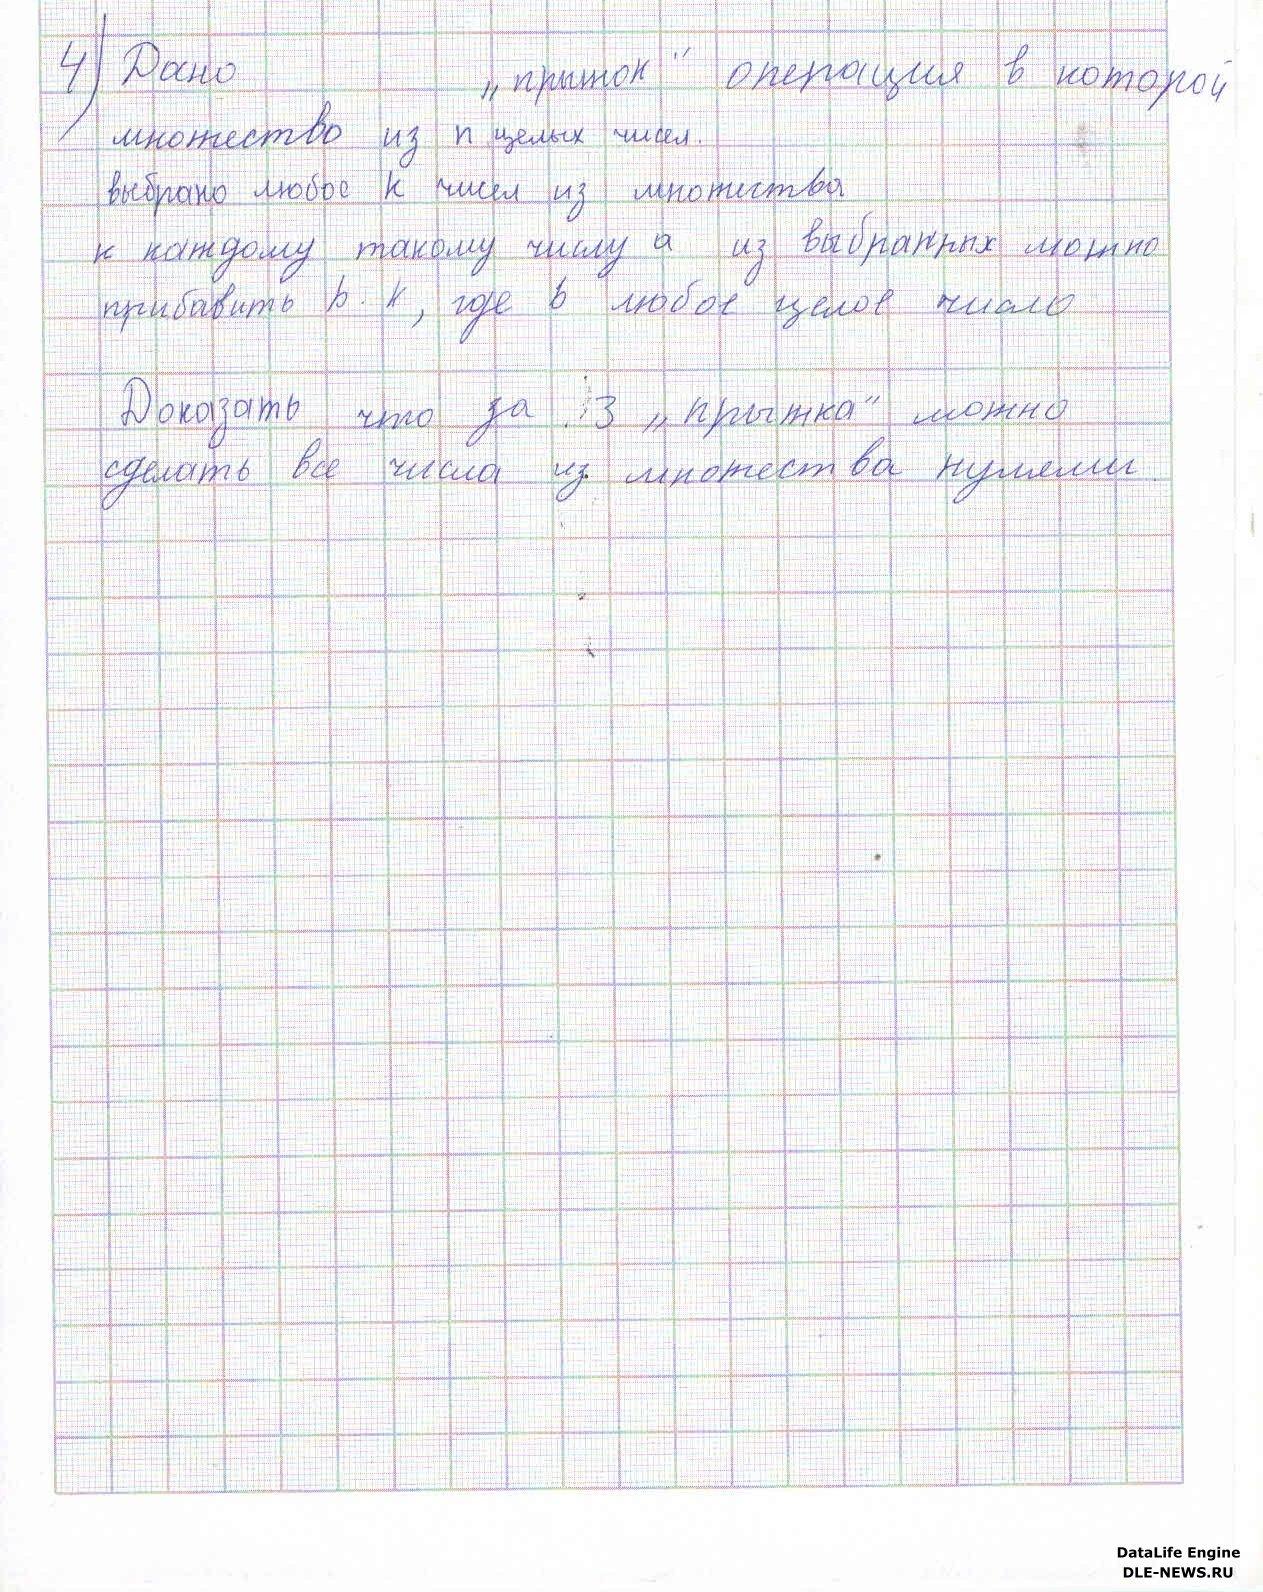 4) Дано „прыжок“ операция в которой
множество из n целых чисел.
выбрано любое k чисел из множества
к каждому такому числу a из выбранных можно
прибавить b·k, где b любое целое число
Доказать что за 3 „прыжка“ можно
сделать все числа из множества нулями.
DataLife Engine
DLE-NEWS.RU